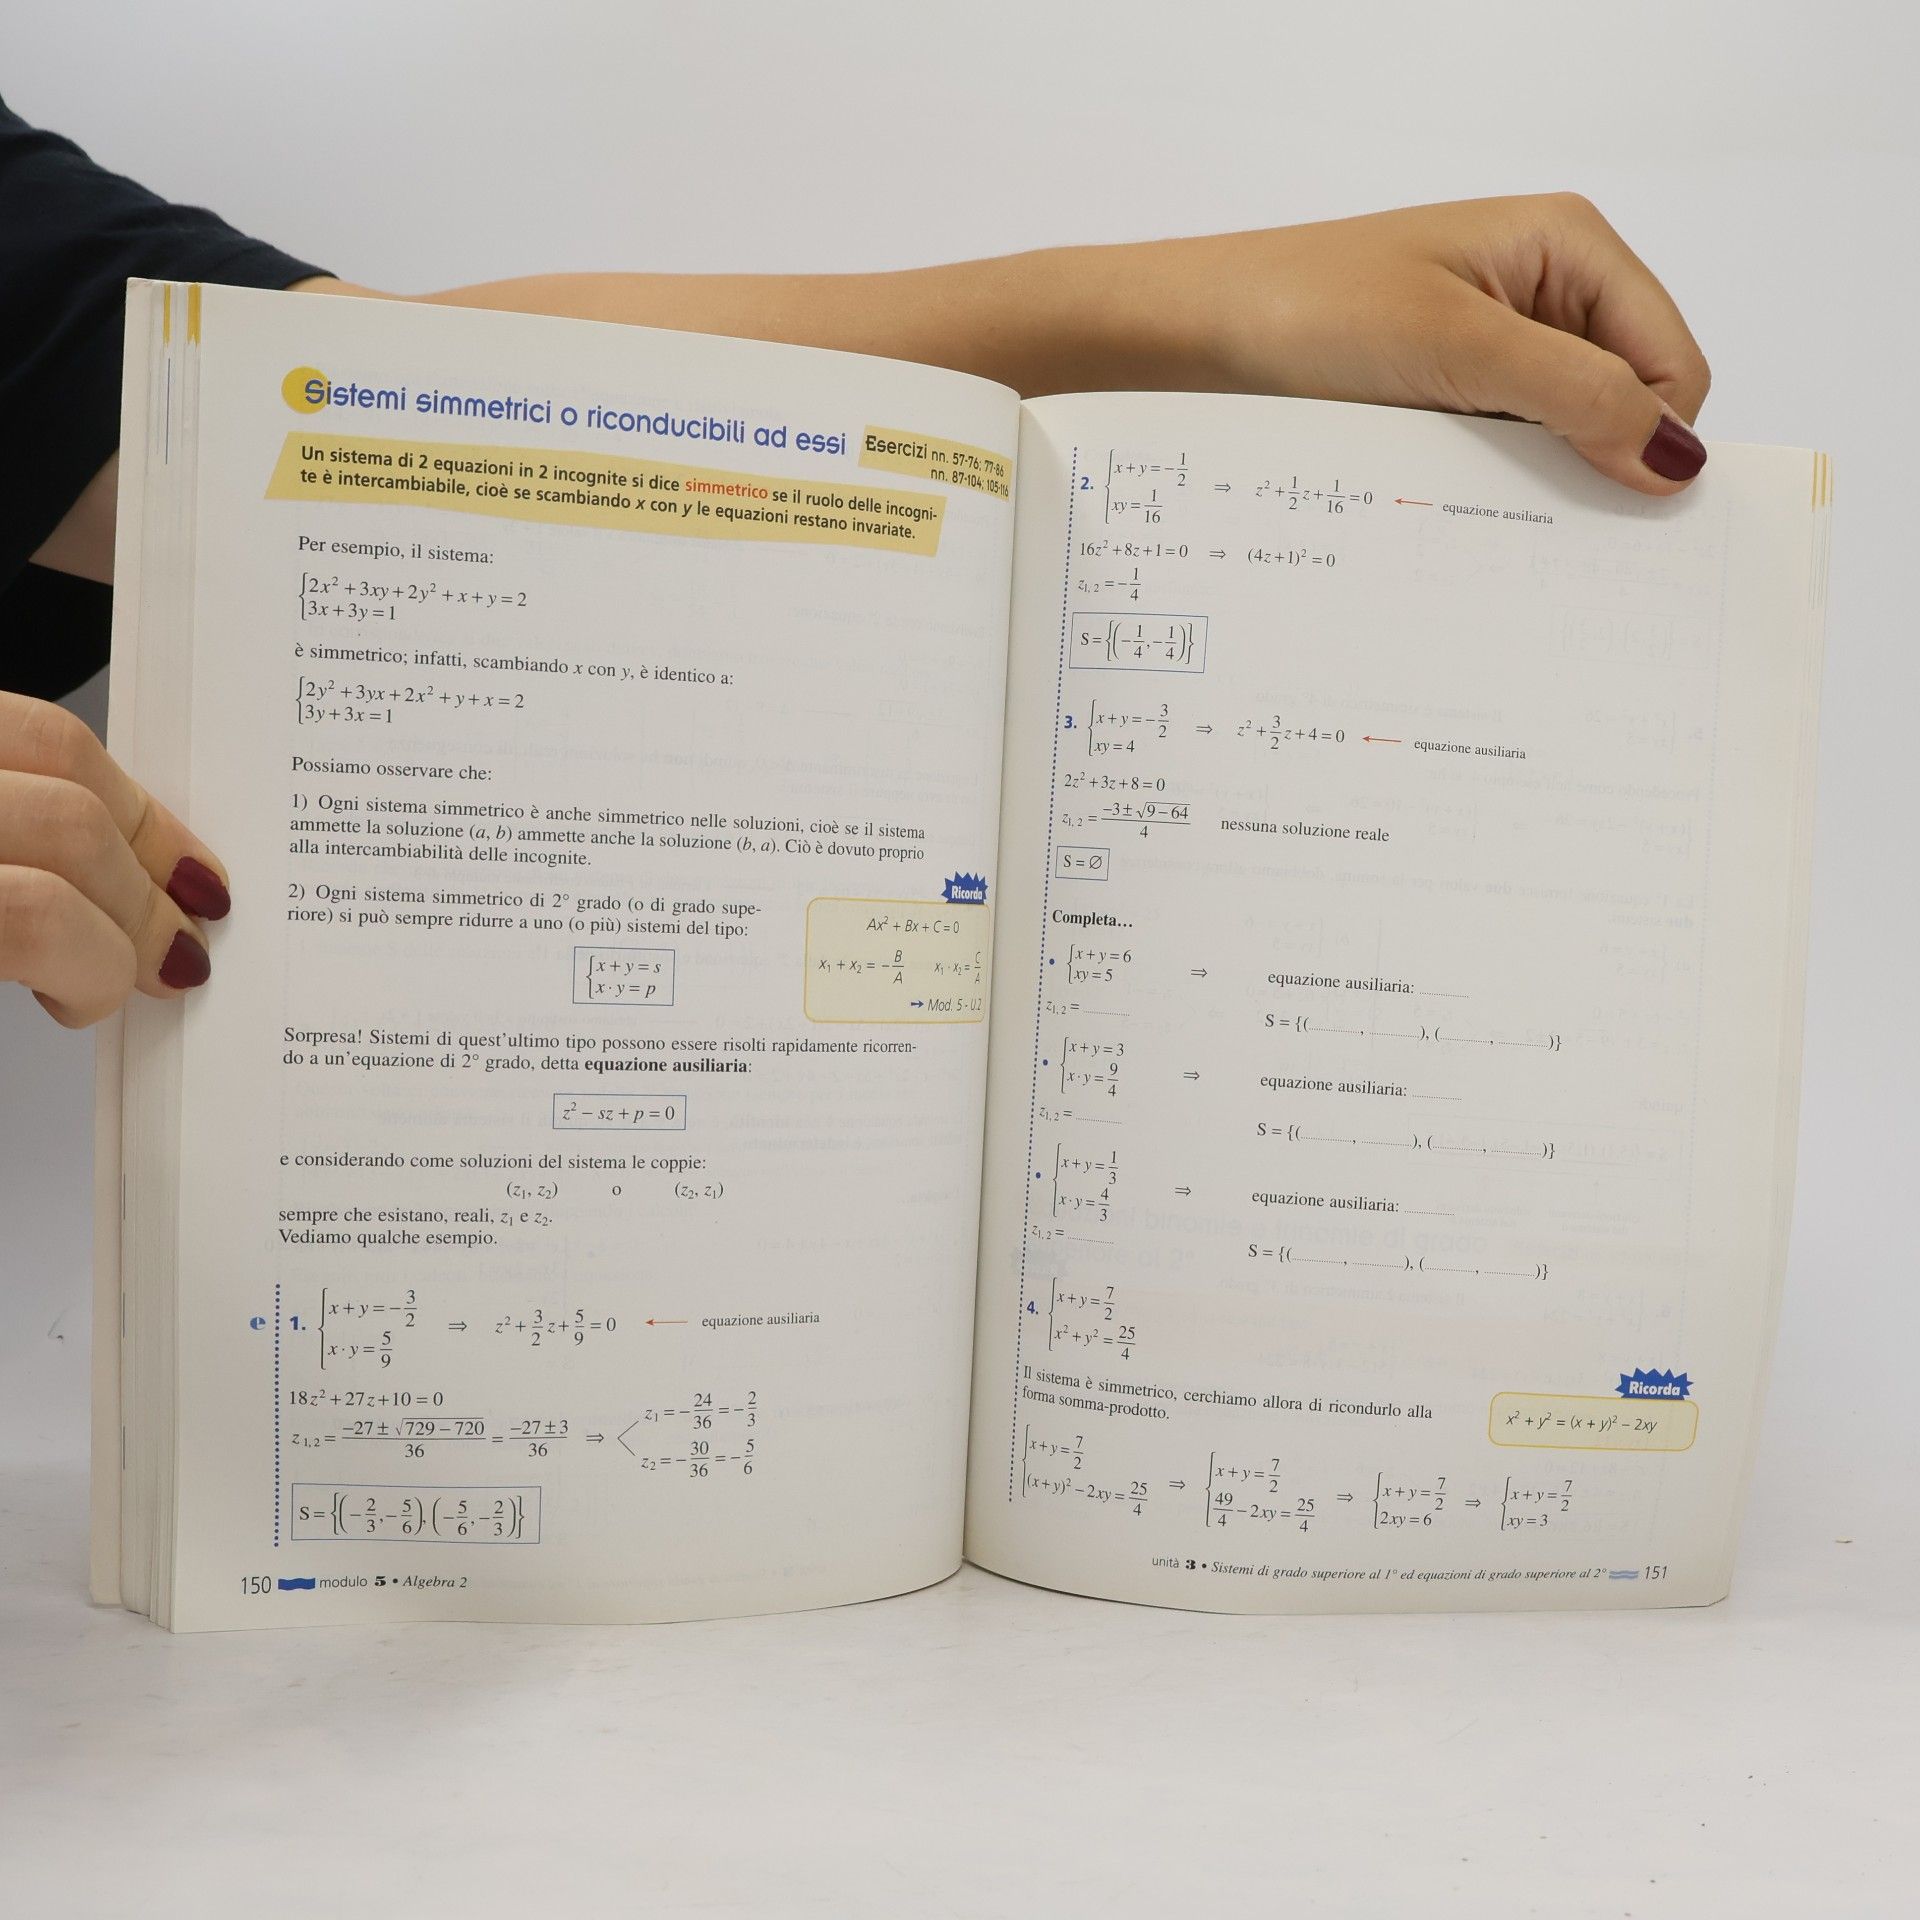 Sistemi simmetrici o riconducibili ad essi
Esercizi nn. 57-76; 77-86
nn. 87-104; 105-116
Un sistema di 2 equazioni in 2 incognite si dice simmetrico se il ruolo delle incogni-
te è intercambiabile, cioè se scambiando x con y le equazioni restano invariate.
Per esempio, il sistema:
{2x² + 3xy + 2y² + x + y = 2
{3x + 3y = 1
è simmetrico; infatti, scambiando x con y, è identico a:
{2y² + 3yx + 2x² + y + x = 2
{3y + 3x = 1
Possiamo osservare che:
1) Ogni sistema simmetrico è anche simmetrico nelle soluzioni, cioè se il sistema
ammette la soluzione (a, b) ammette anche la soluzione (b, a). Ciò è dovuto proprio
alla intercambiabilità delle incognite.
2) Ogni sistema simmetrico di 2° grado (o di grado supe-
riore) si può sempre ridurre a uno (o più) sistemi del tipo:
{x + y = s
{x · y = p
Ricorda
Ax² + Bx + C = 0
x₁ + x₂ = −B/A x₁ · x₂ = C/A
→ Mod. 5 - U.2
Sorpresa! Sistemi di quest'ultimo tipo possono essere risolti rapidamente ricorren-
do a un'equazione di 2° grado, detta equazione ausiliaria:
z² − sz + p = 0
e considerando come soluzioni del sistema le coppie:
(z₁, z₂) o (z₂, z₁)
sempre che esistano, reali, z₁ e z₂.
Vediamo qualche esempio.
e 1. {x + y = −3/2
{x · y = 5/9
⇒ z² + 3/2 z + 5/9 = 0 ← equazione ausiliaria
18z² + 27z + 10 = 0
z₁, ₂ = (−27 ± √(729 − 720))/36 = (−27 ± 3)/36 ⇒
z₁ = −24/36 = −2/3
z₂ = −30/36 = −5/6
S = {(−2/3, −5/6), (−5/6, −2/3)}
150 modulo 5 • Algebra 2
2. {x + y = −1/2
{xy = 1/16
⇒ z² + 1/2 z + 1/16 = 0 ← equazione ausiliaria
16z² + 8z + 1 = 0 ⇒ (4z + 1)² = 0
z₁, ₂ = −1/4
S = {(−1/4, −1/4)}
3. {x + y = −3/2
{xy = 4
⇒ z² + 3/2 z + 4 = 0 ← equazione ausiliaria
2z² + 3z + 8 = 0
z₁, ₂ = (−3 ± √(9 − 64))/4 nessuna soluzione reale
S = Ø
Completa...
• {x + y = 6
{xy = 5
⇒ equazione ausiliaria: ............
z₁, ₂ = ............ S = {(............, ............), (............, ............)}
• {x + y = 3
{x · y = 9/4
⇒ equazione ausiliaria: ............
z₁, ₂ = ............ S = {(............, ............), (............, ............)}
• {x + y = 1/3
{x · y = 4/3
⇒ equazione ausiliaria: ............
z₁, ₂ = ............ S = {(............, ............), (............, ............)}
4. {x + y = 7/2
{x² + y² = 25/4
Il sistema è simmetrico, cerchiamo allora di ricondurlo alla
forma somma-prodotto.
Ricorda
x² + y² = (x + y)² − 2xy
{x + y = 7/2 ⇒ {x + y = 7/2 ⇒ {x + y = 7/2 ⇒ {x + y = 7/2
{(x + y)² − 2xy = 25/4 {49/4 − 2xy = 25/4 {2xy = 6 {xy = 3
unità 3 • Sistemi di grado superiore al 1° ed equazioni di grado superiore al 2° 151